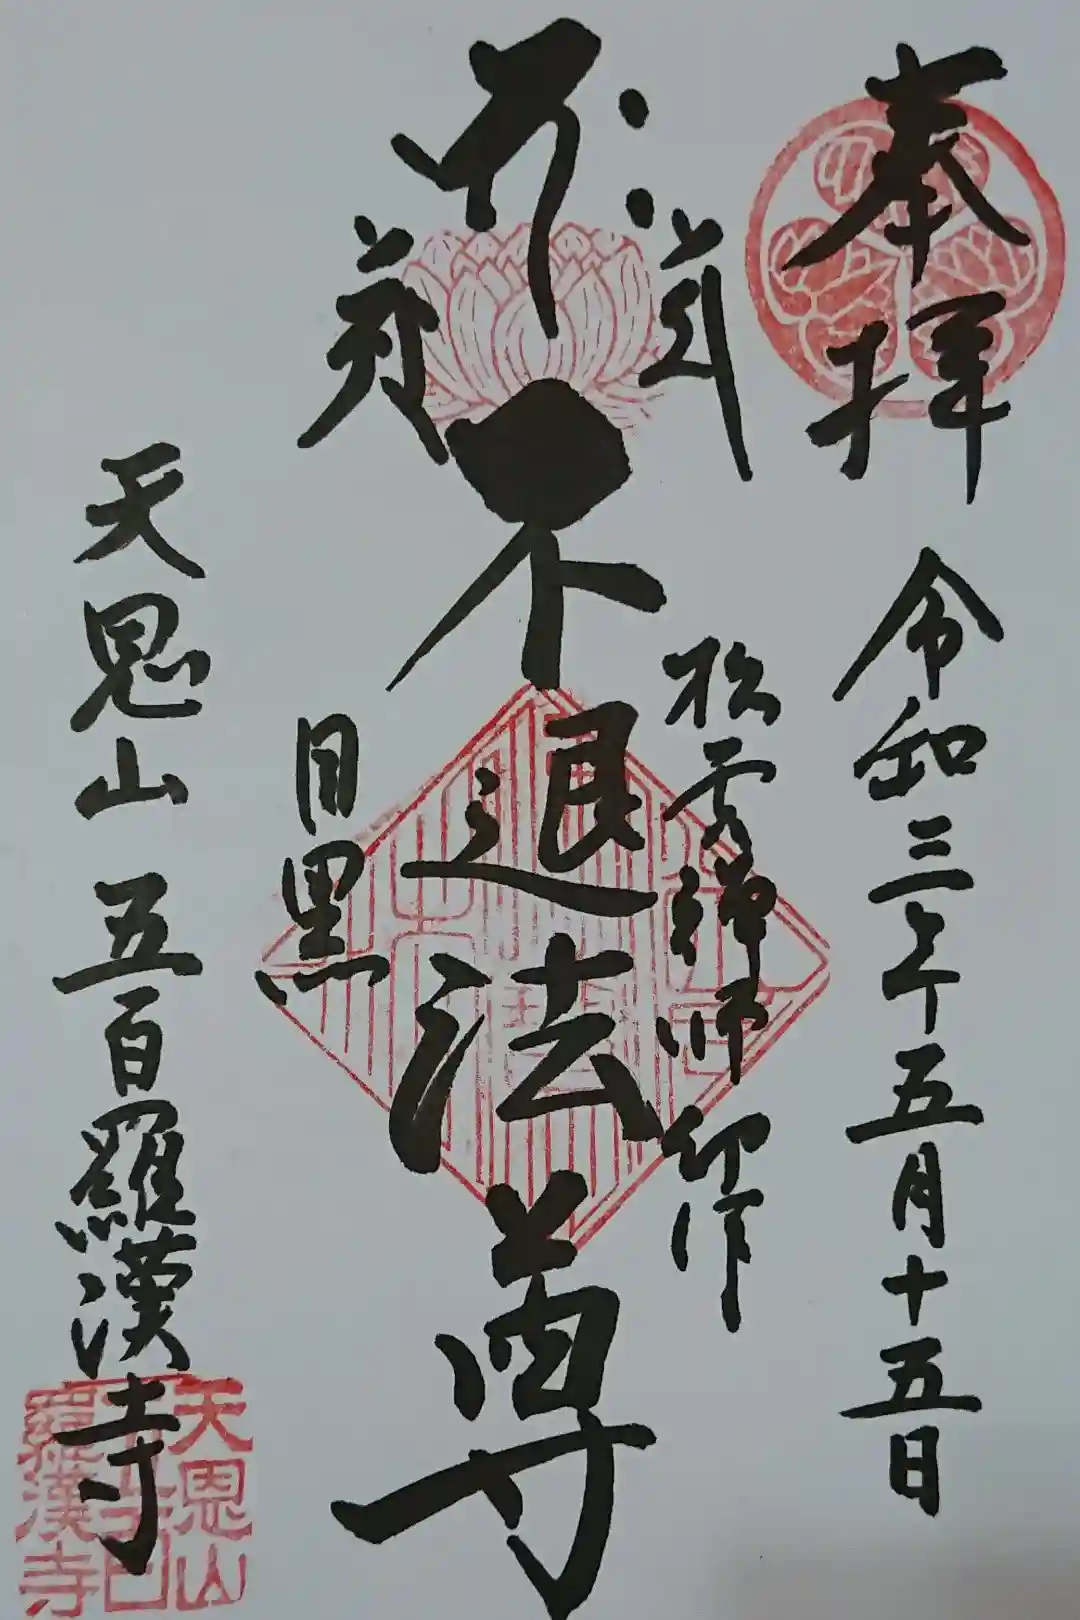 奉拝
令和三年五月十五日
松雲禅師 印作
不退法尊
目黒
天恩山 五百羅漢寺
天恩山
五百
羅漢寺